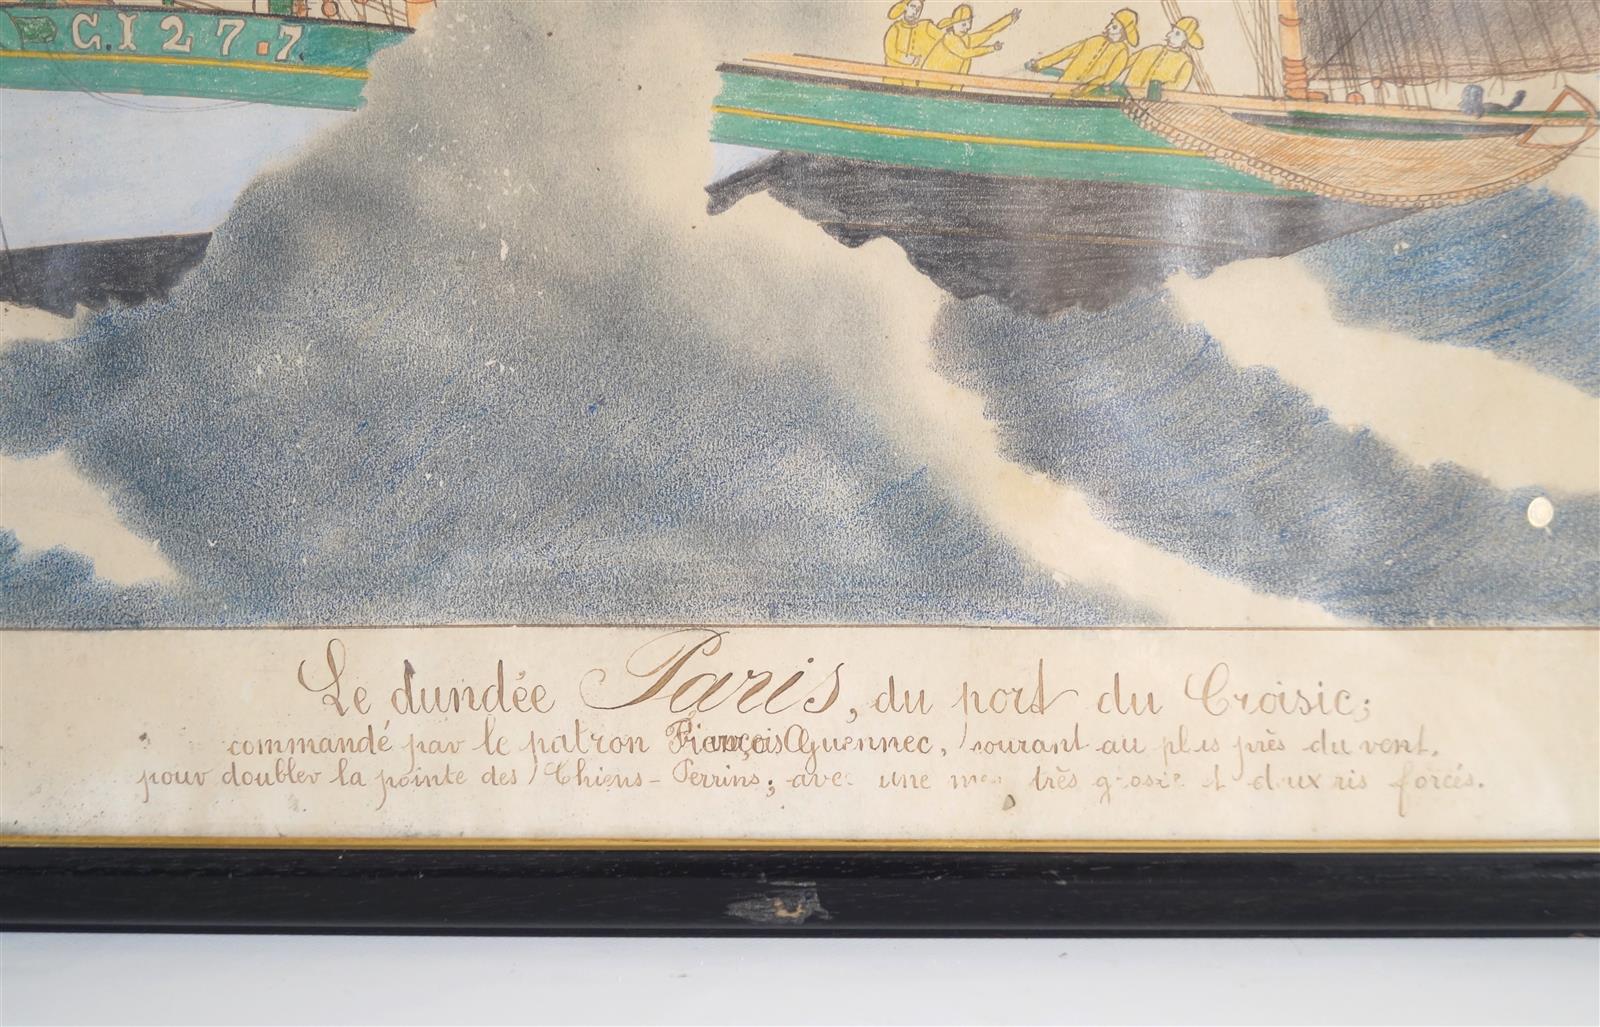 C.1277.
Le dundée Paris, du port du Croisic;
commandé par le patron François Guennec, courant au plus près du vent,
pour doubler la pointe des Chiens-Perrins; avec une mer très grosse et deux ris forcés.